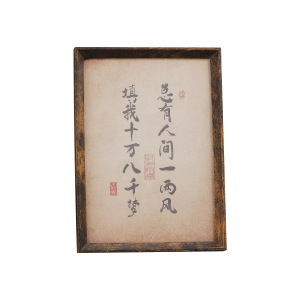 总有人间一两风
填我十万八千梦